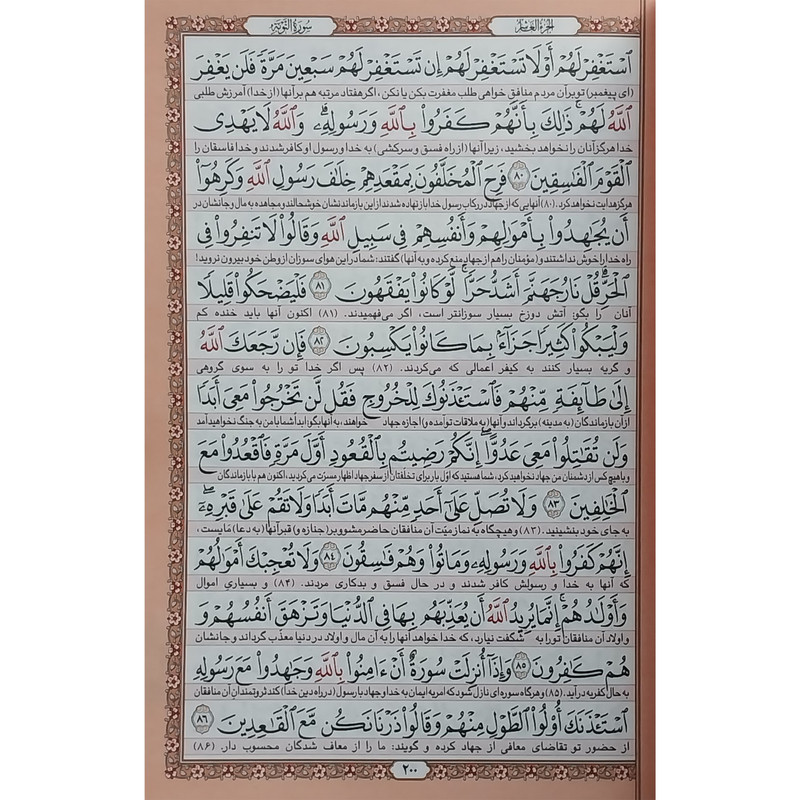 الجزء العاشر
سورة التوبة
ٱسۡتَغۡفِرۡ لَهُمۡ أَوۡ لَا تَسۡتَغۡفِرۡ لَهُمۡ إِن تَسۡتَغۡفِرۡ لَهُمۡ سَبۡعِينَ مَرَّةً فَلَن يَغۡفِرَ
(ای پیغمبر) تو بر آن مردم منافق خواهی طلب مغفرت بکن یا نکن، اگر هفتاد مرتبه هم بر آنها (از خدا) آمرزش طلبی
ٱللَّهُ لَهُمۡۚ ذَٰلِكَ بِأَنَّهُمۡ كَفَرُواْ بِٱللَّهِ وَرَسُولِهِۦۗ وَٱللَّهُ لَا يَهۡدِى
خدا هرگز آنان را نخواهد بخشید، زیرا آنها (از راه فسق و سرکشی) به خدا و رسول او کافر شدند و خدا فاسقان را
ٱلۡقَوۡمَ ٱلۡفَٰسِقِينَ ٨٠ فَرِحَ ٱلۡمُخَلَّفُونَ بِمَقۡعَدِهِمۡ خِلَٰفَ رَسُولِ ٱللَّهِ وَكَرِهُوٓاْ
هرگز هدایت نخواهد کرد. (۸۰) آنهایی که از جهاد در رکاب رسول خدا باز نهاده شدند از این بازماندنشان خوشحالند و مجاهده به مال و جانشان در
أَن يُجَٰهِدُواْ بِأَمۡوَٰلِهِمۡ وَأَنفُسِهِمۡ فِى سَبِيلِ ٱللَّهِ وَقَالُواْ لَا تَنفِرُواْ فِى
راه خدا را خوش نداشتند و (مؤمنان را هم از جهاد منع کرده و به آنها) گفتند: شما در این هوای سوزان از وطن خود بیرون نروید!
ٱلۡحَرِّۗ قُلۡ نَارُ جَهَنَّمَ أَشَدُّ حَرًّاۚ لَّوۡ كَانُواْ يَفۡقَهُونَ ٨١ فَلۡيَضۡحَكُواْ قَلِيلًا
آنان را بگو: آتش دوزخ بسیار سوزانتر است، اگر می‌فهمیدند. (۸۱) اکنون آنها باید خنده کم
وَلۡيَبۡكُواْ كَثِيرًا جَزَآءَۢ بِمَا كَانُواْ يَكۡسِبُونَ ٨٢ فَإِن رَّجَعَكَ ٱللَّهُ
و گریه بسیار کنند به کیفر اعمالی که می‌کردند. (۸۲) پس اگر خدا تو را به سوی گروهی
إِلَىٰ طَآئِفَةٍ مِّنۡهُمۡ فَٱسۡتَـٔۡذَنُوكَ لِلۡخُرُوجِ فَقُل لَّن تَخۡرُجُواْ مَعِىَ أَبَدًا
از آن بازماندگان (به مدینه) برگرداند و آنها (به ملاقات تو آمده و) اجازه جهاد خواهند، به آنها بگو: ابدا شما با من به جنگ نخواهید آمد
وَلَن تُقَٰتِلُواْ مَعِىَ عَدُوًّاۖ إِنَّكُمۡ رَضِيتُم بِٱلۡقُعُودِ أَوَّلَ مَرَّةٍ فَٱقۡعُدُواْ مَعَ
و با هیچ کس از دشمنان من جهاد نخواهید کرد، شما هستید که اوّل بار برای تخلفتان از سفر جهاد اظهار مسرّت می‌کردید، اکنون هم با بازماندگان
ٱلۡخَٰلِفِينَ ٨٣ وَلَا تُصَلِّ عَلَىٰٓ أَحَدٍ مِّنۡهُم مَّاتَ أَبَدًا وَلَا تَقُمۡ عَلَىٰ قَبۡرِهِۦٓۖ
به جای خود بنشینید. (۸۳) و هیچگاه به نماز میّت آن منافقان حاضر مشو و بر (جنازه و) قبر آنها (به دعا) مایست،
إِنَّهُمۡ كَفَرُواْ بِٱللَّهِ وَرَسُولِهِۦ وَمَاتُواْ وَهُمۡ فَٰسِقُونَ ٨٤ وَلَا تُعۡجِبۡكَ أَمۡوَٰلُهُمۡ
که آنها به خدا و رسولش کافر شدند و در حال فسق و بدکاری مردند. (۸۴) و بسیاری اموال
وَأَوۡلَٰدُهُمۡۚ إِنَّمَا يُرِيدُ ٱللَّهُ أَن يُعَذِّبَهُم بِهَا فِى ٱلدُّنۡيَا وَتَزۡهَقَ أَنفُسُهُمۡ وَ
و اولاد آن منافقان تو را به شگفت نیارد، که خدا خواهد آنها را به آن مال و اولاد در دنیا معذب گرداند و جانشان
هُمۡ كَٰفِرُونَ ٨٥ وَإِذَآ أُنزِلَتۡ سُورَةٌ أَنۡ ءَامِنُواْ بِٱللَّهِ وَجَٰهِدُواْ مَعَ رَسُولِهِ
به حال کفر به در آید. (۸۵) و هرگاه سوره‌ای نازل شود که امر به ایمان به خدا و جهاد با رسول (در راه دین خدا) کند ثروتمندان آن منافقان
ٱسۡتَـٔۡذَنَكَ أُوْلُواْ ٱلطَّوۡلِ مِنۡهُمۡ وَقَالُواْ ذَرۡنَا نَكُن مَّعَ ٱلۡقَٰعِدِينَ ٨٦
از حضور تو تقاضای معافی از جهاد کرده و گویند: ما را از معاف شدگان محسوب دار. (۸۶)
٢٠٠